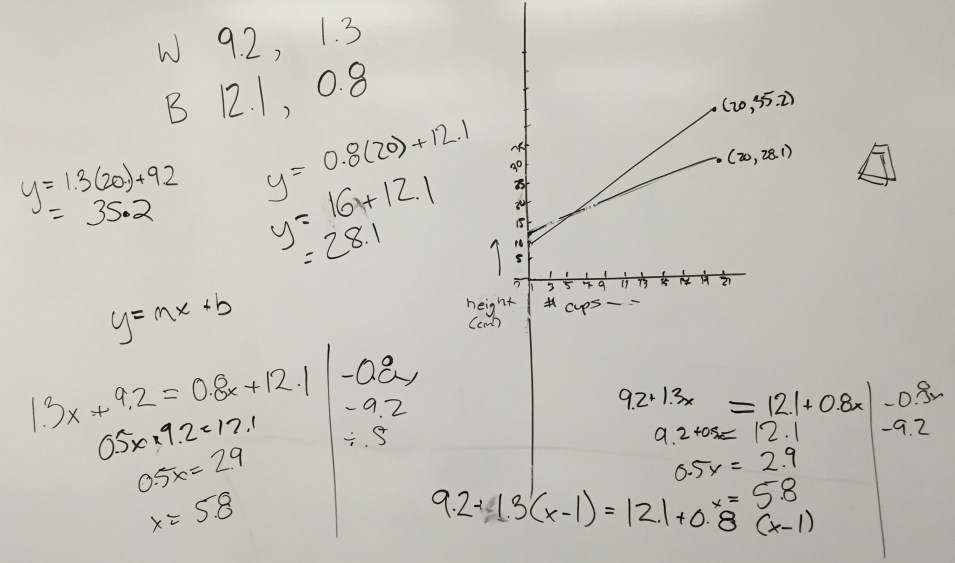 W 9.2, 1.3
B 12.1, 0.8
y = 1.3(20) + 9.2
= 35.2
y = 0.8(20) + 12.1
y = 16 + 12.1
= 28.1
y = mx + b
(20, 35.2)
(20, 28.1)
30
25
20
15
10
5
1 3 5 7 9 11 13 15 17 19 21
height
(cm)
# cups
1.3x + 9.2 = 0.8x + 12.1 | -0.8x
0.5x + 9.2 = 12.1 | -9.2
0.5x = 2.9 | ÷ .5
x = 5.8
9.2 + 1.3x = 12.1 + 0.8x | -0.8x
9.2 + 0.5x = 12.1 | -9.2
0.5x = 2.9
x = 5.8
9.2 + 1.3(x-1) = 12.1 + 0.8 (x-1)